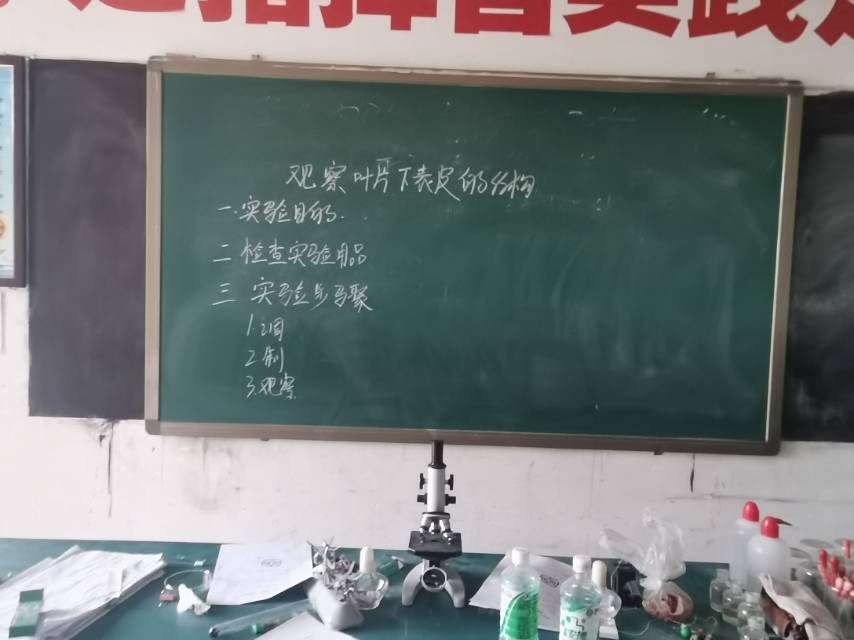 是指挥官实践
观察叶片下表皮的结构
一.实验目的.
二 检查实验用品
三 实验步骤
1.调
2.制
3.观察